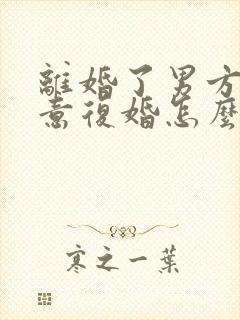 離婚了男方
意復婚怎麼
寒之一葉